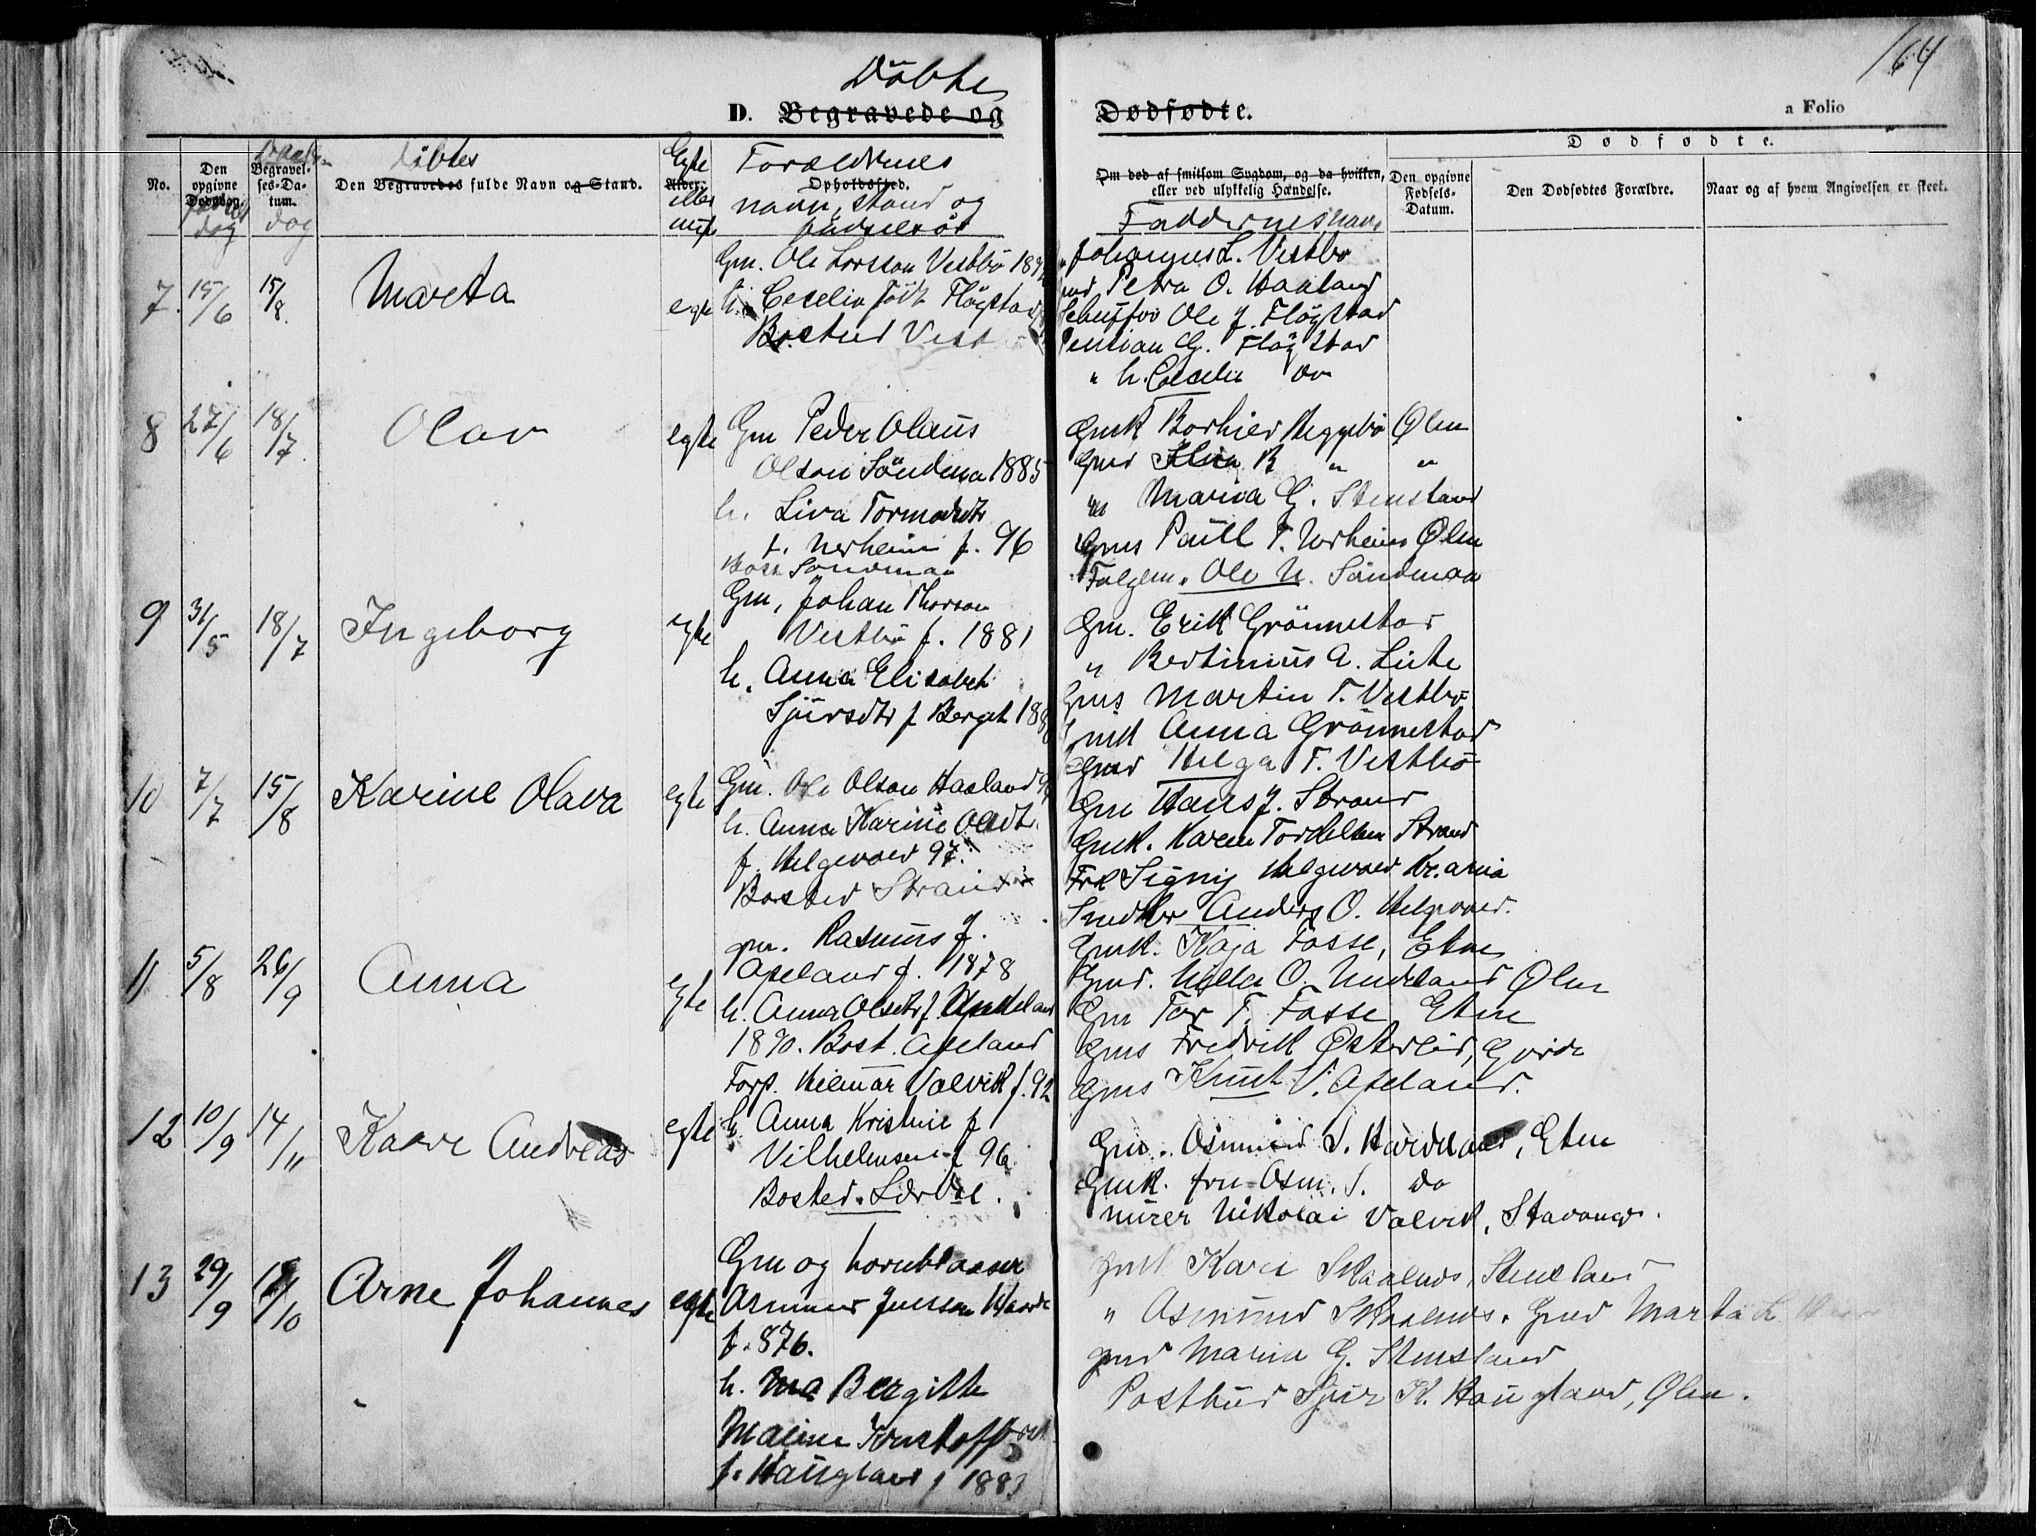 164
Döbte
D. Begravede og Dødfødte.
a Folio
No.
Den opgivne Dødsdag.
dag
Begravelses-Datum.
dag
döbtes
Den Begravedes fulde Navn og Stand.
Egte
Alder.
eller
Forældrenes
Opholdssted.
navn, stand og
fødselsår
Om død af smitsom Sygdom, og da hvilken,
eller ved ulykkelig Hændelse.
Faddernes navn
Dødfødte.
Den opgivne Fødsels-Datum.
Den Dødfødtes Forældre.
Naar og af hvem Angivelsen er skeet.
7. 15/6 15/8. Marta egte
Gm. Ole Larsson Vestbö
h. Cecelia född Flögstad
Bosted Vest
Johannes L. Vestbö
Petra O. Haaland
Ole J. Flögstad
G. Flögstad
" h. Cecelia do
8 27/6 18/7 Olav egte
Gm Peder Olaus
Olson Söndena 1885
h. Liva Tormodsdtr
f. Nerheim f. 96
Bost Söndenaa
Gmk Borhild Heggebö Ölen
Gmd B " "
" Marina G. Stensland
Gms Paul T. Nerheim Ölen
Ole N. Söndenaa
9 31/5 18/7 Ingeborg egte
Gm, Johan Thorson
Vestbö f. 1881
h. Anna Elisabet
Sjursdtr f Berget 188
Gm. Erik Grönnestad
" Bertinius A. Liete
Gms Martin T. Vestbö
Gmk Anna Grönnestad
Gmd Helga T. Vestbö
10 7/7 15/8 Karine Olava egte
Gm. Ole Olson Haaland
h. Anna Karine Olsdtr.
f. Helgevold 97.
Bosted Strand
Gm Hans J. Strand
Gmk. Karen Tordelsen Strand
Frk Signy Helgevold Kr.ania
Anders O. Helgevold.
11 5/8 26/9 Anna egte
gm. Rasmus J.
Apeland f. 1878
h. Anna Olsdtr f. Undeland
1890. Bost. Apeland
Gmk. Kaja Fosse, Etne
Gmd. O. Undeland Ölen
Gm Tor T. Fosse Etne
Gms Fredrik Österlid, Gjerde
Gms Knut V. Apeland.
12 10/9 14/11 Kaare Andreas egte
Forp. Hilmar Valvik f. 92
h Anna Kristine f
Vilhelmsen f 96
Bosted. Lærdal.
Gm. Osmund S. Haaland, Etne
Gmk. fru Osm. S. do
murer Nikolai Valvik, Stavanger.
13 29/9 18/10 Arne Johannes egte
Gm og hornblaaser
Jensson
f. 876.
h. Bergitte
Malene Kristoffersd
f. Haugland f 1883
gmk Kari Skaalnes, Stensland
" Osmund Skaalnes. Gmd Marta L.
gmd Marina G. Stensland
Posthud Sjur K. Haugland, Ölen.